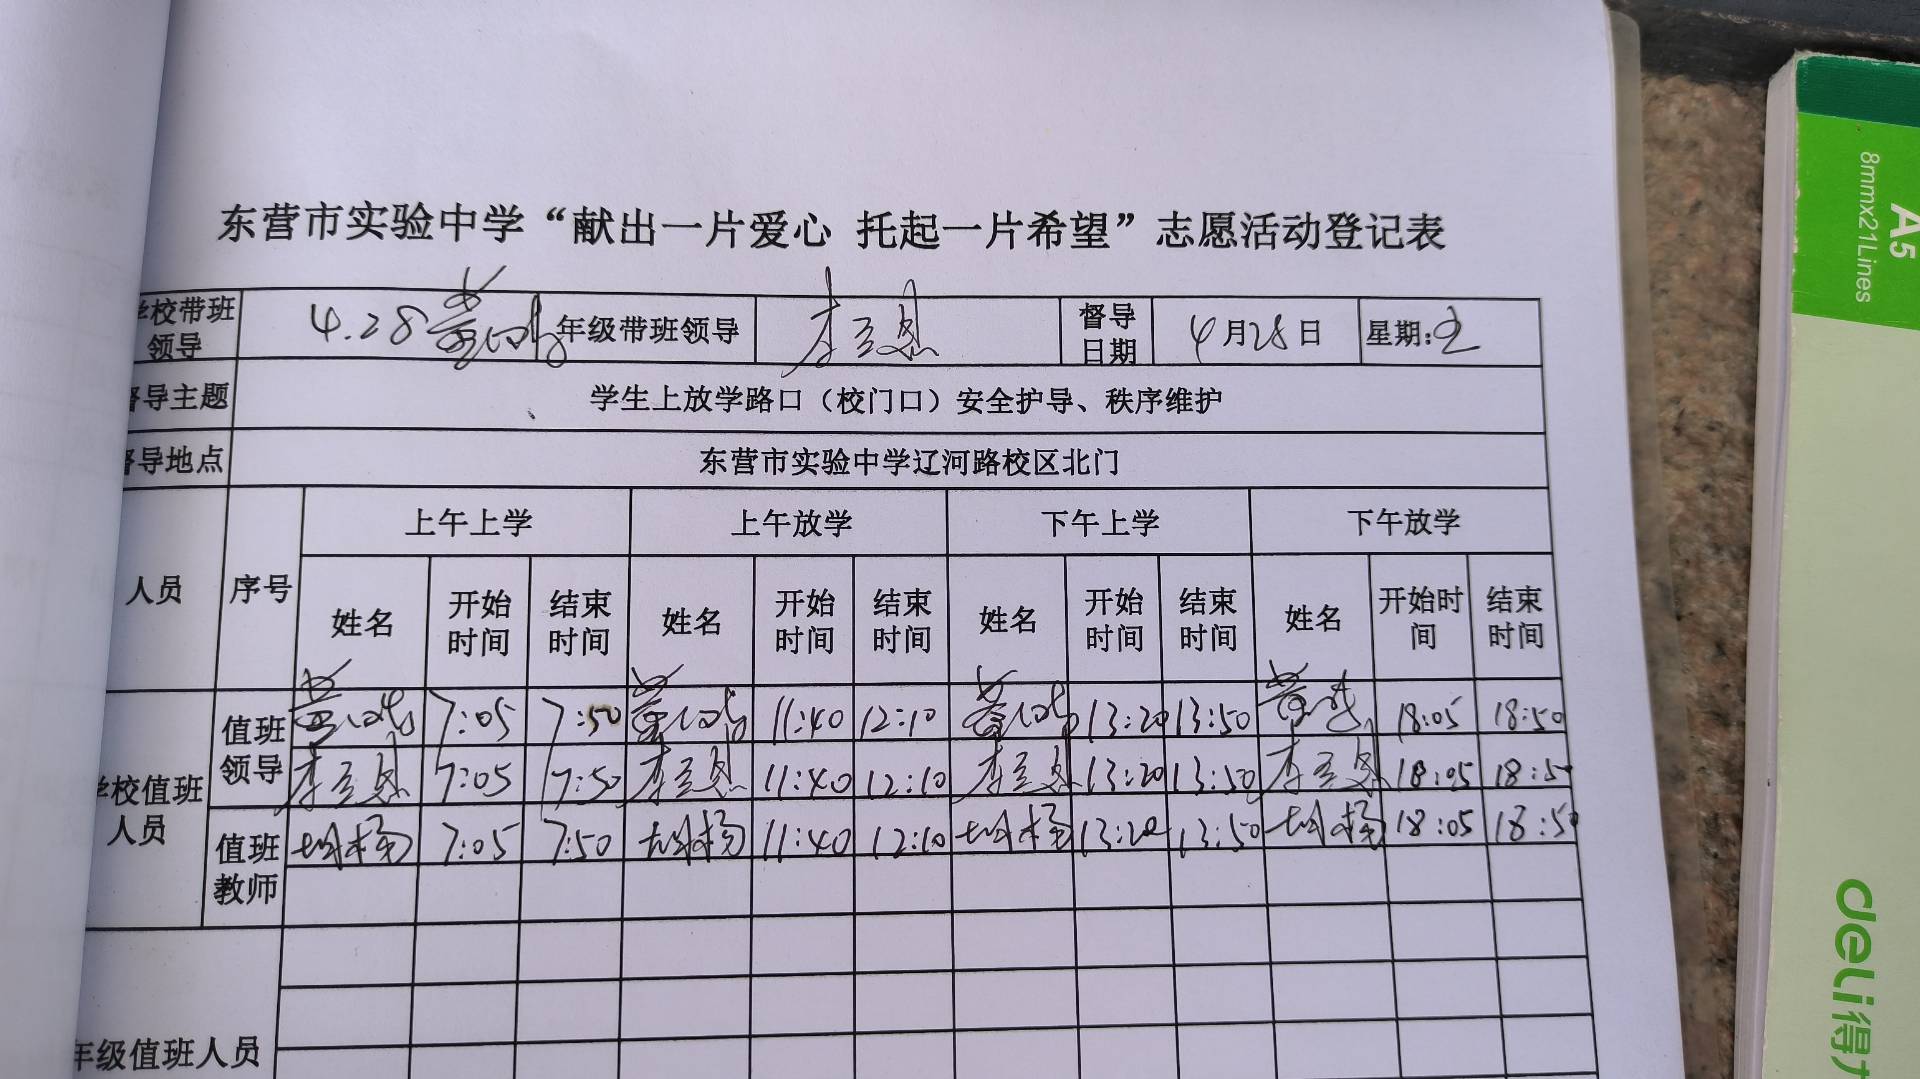 东营市实验中学“献出一片爱心 托起一片希望”志愿活动登记表
校带班领导 4.28 年级带班领导 督导日期 4月28日 星期:五
导主题 学生上放学路口（校门口）安全护导、秩序维护
导地点 东营市实验中学辽河路校区北门
人员 序号 上午上学 上午放学 下午上学 下午放学
姓名 开始时间 结束时间 姓名 开始时间 结束时间 姓名 开始时间 结束时间 姓名 开始时间 结束时间
校值班人员 值班领导 7:05 7:50 11:40 12:10 13:20 13:50 18:05 18:50
7:05 7:50 11:40 12:10 13:20 13:50 18:05 18:50
值班教师 7:05 7:50 11:40 12:10 13:20 13:50 18:05 18:50
年级值班人员
A5
8mmx21Lines
deli得力